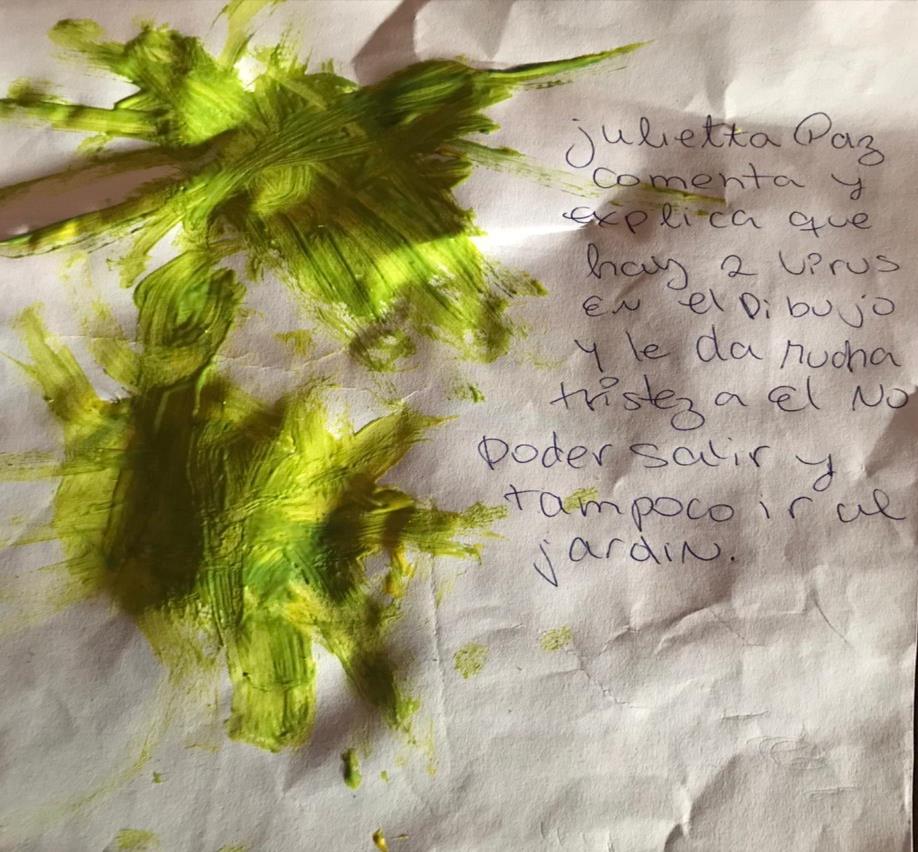 julietta Paz
comenta y
explica que
hay 2 virus
EN el Dibujo
y le da mucha
tristeza el No
poder salir y
tampoco ir al
jardin.